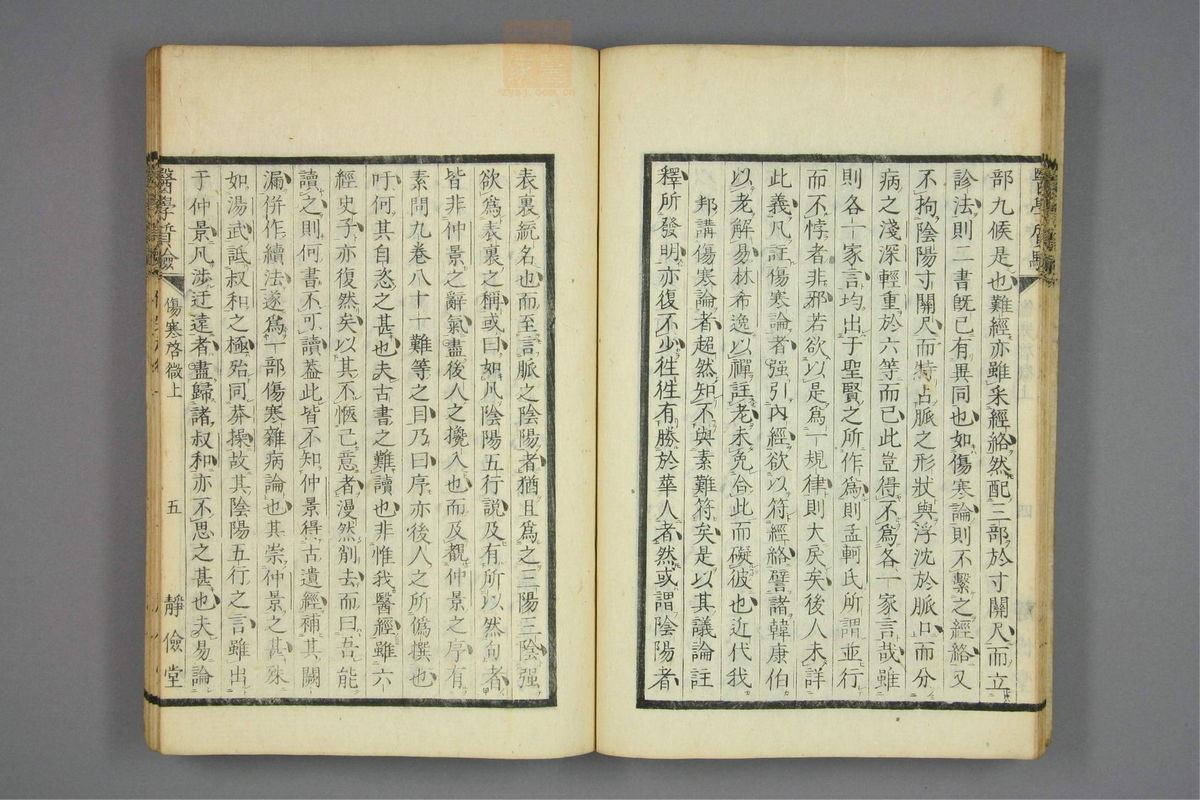 部九候是也難經亦雖采經絡然配三部於寸關尺而立
診法則二書旣已有異同也如傷寒論則不繫之經絡又
不拘陰陽寸關尺而特占脈之形狀與浮沈於脈口而分
病之淺深輕重於六等而已此豈得不爲各一家言哉雖
則各一家言均出于聖賢之所作爲則孟軻氏所謂並行
而不悖者非邪若欲以是爲一規律則大戾矣後人未詳
此義凡註傷寒論者強引內經欲以符經絡譬諸韓康伯
以老解易林希逸以禪註老未免合此而礙彼也近代我
邦講傷寒論者超然知不與素難符矣是以其議論註
釋所發明亦復不少徃徃有勝於華人者然或謂陰陽者
表裏統名也而至言脈之陰陽者猶且爲之三陽三陰强
欲爲表裏之稱或曰如凡陰陽五行說及有所以然向者
皆非仲景之辭氣盡後人之攙入也而及覯仲景之序有
素問九卷八十一難等之目乃曰序亦後人之所僞撰也
吁何其自恣之甚也夫古書之難讀也非惟我醫經雖六
經史子亦復然矣以其不愜己意者漫然削去而曰吾能
讀之則何書不可讀蓋此皆不知仲景得古遺經補其闕
漏併作續法遂爲一部傷寒雜病論也其崇仲景之甚殊
如湯武詆叔和之極殆同莽操故其陰陽五行之言雖出
于仲景凡涉迂遠者盡歸諸叔和亦不思之甚也夫易論
醫學質驗
傷寒啓微上
五
靜儉堂